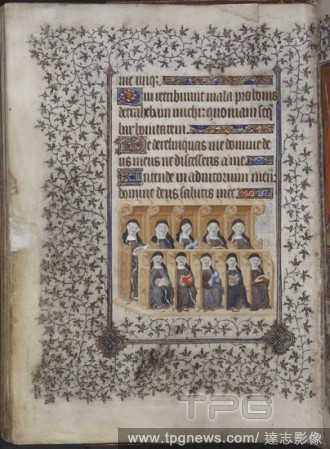 me iniq
Qui retribuunt mala pro bonis
detrahebant michi: quoniam seq
bar bonitatem.
Ne derelinquas me domine de
us meus ne discesseris a me.
Intende in adiutorium meū
domine deus salutis mee.
TPG
www.tpgnews.com/ 達志影像